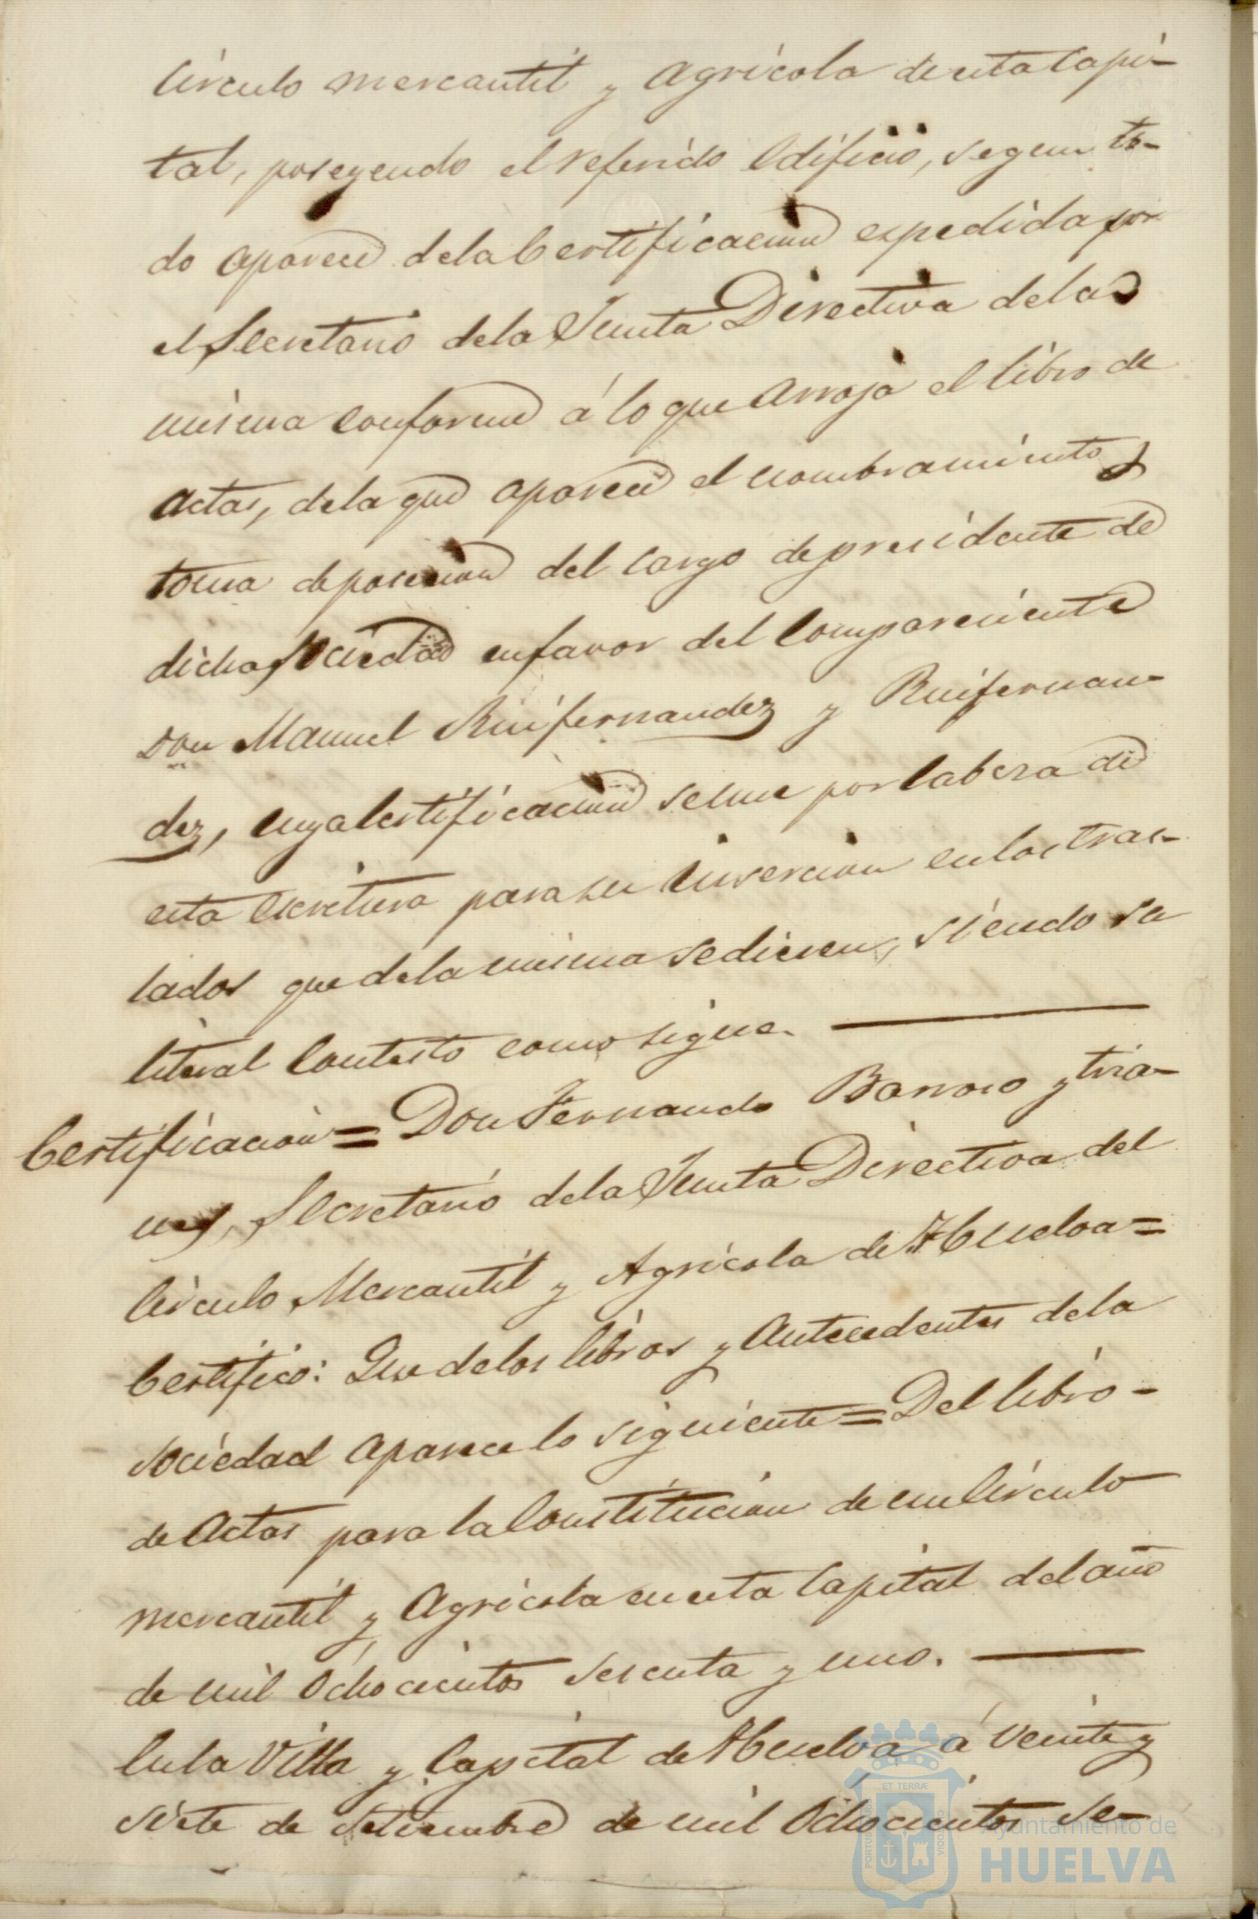 Circulo mercantil y Agrícola de esta Capi-
tal, poseyendo el referido Edificio, segun to-
do aparece de la Certificacion expedida por
el Secretario de la Junta Directiva de la
misma conforme á lo que arroja el libro de
Actas, de la que aparece el nombramiento y
toma de posesion del cargo de presidente de
dicha Sociedad en favor del Compareciente
Don Manuel Ruifernandez y Ruifernan-
dez, cuya Certificacion se une por Cabeza de
esta Escritura para su insercion en los tras-
lados que de la misma se dieren, siendo su
literal Contesto como sigue.
Certificacion = Don Fernando Barroso y Tria-
na, Secretario de la Junta Directiva del
Circulo Mercantil y Agrícola de Huelva =
Certifico: Que de los libros y Antecedentes de la
Sociedad aparece lo siguiente = Del libro -
de Actas para la Constitucion de un Circulo
Mercantil y Agrícola en esta Capital del año
de mil Ochocientos sesenta y uno.
En la Villa y Capital de Huelva á Veinte y
siete de Setiembre de mil Ochocientos se-
ET TERRÆ
Ayuntamiento de
HUELVA